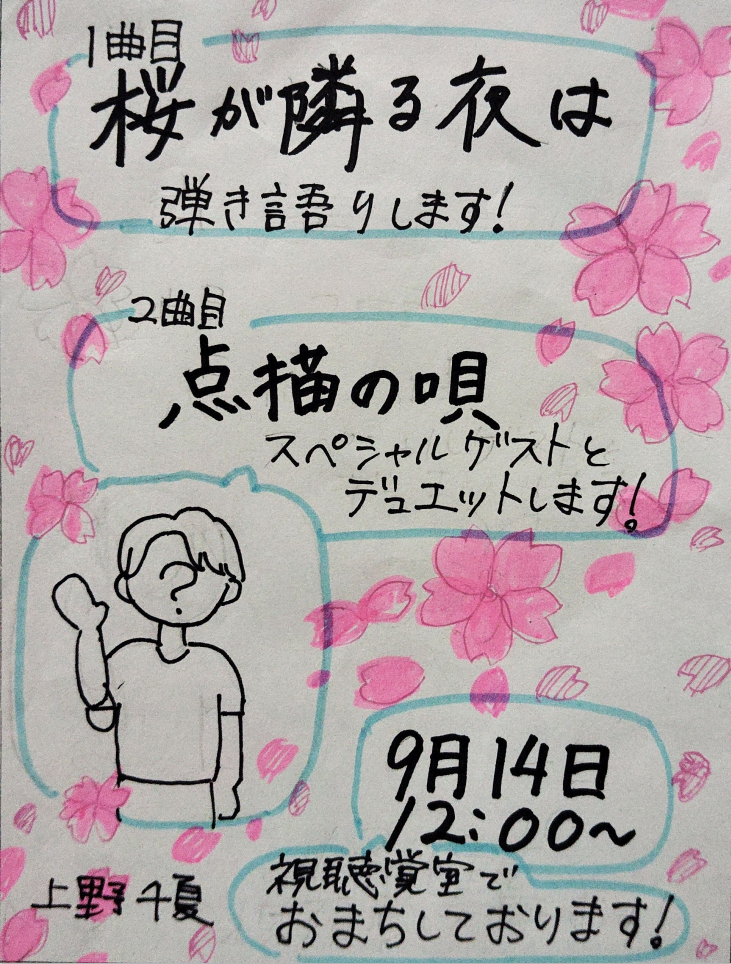 1曲目
桜が隣る夜は
弾き語りします!
2曲目
点描の唄
スペシャルゲストと
デュエットします!
?
9月14日
12:00~
視聴覚室で
おまちしております!
上野千夏